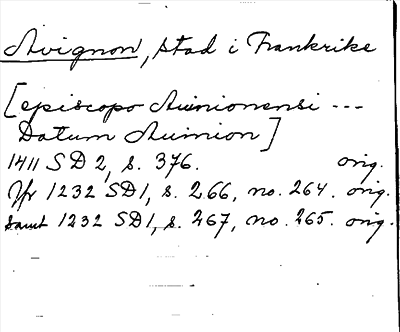 Avignon, stad i Frankrike
[episcopo Auinionensi ---
Datum Auinion]
1411 SD 2, s. 376. orig.
Yfr 1232 SD 1, s. 266, no. 264. orig.
samt 1232 SD 1, s. 267, no. 265. orig.